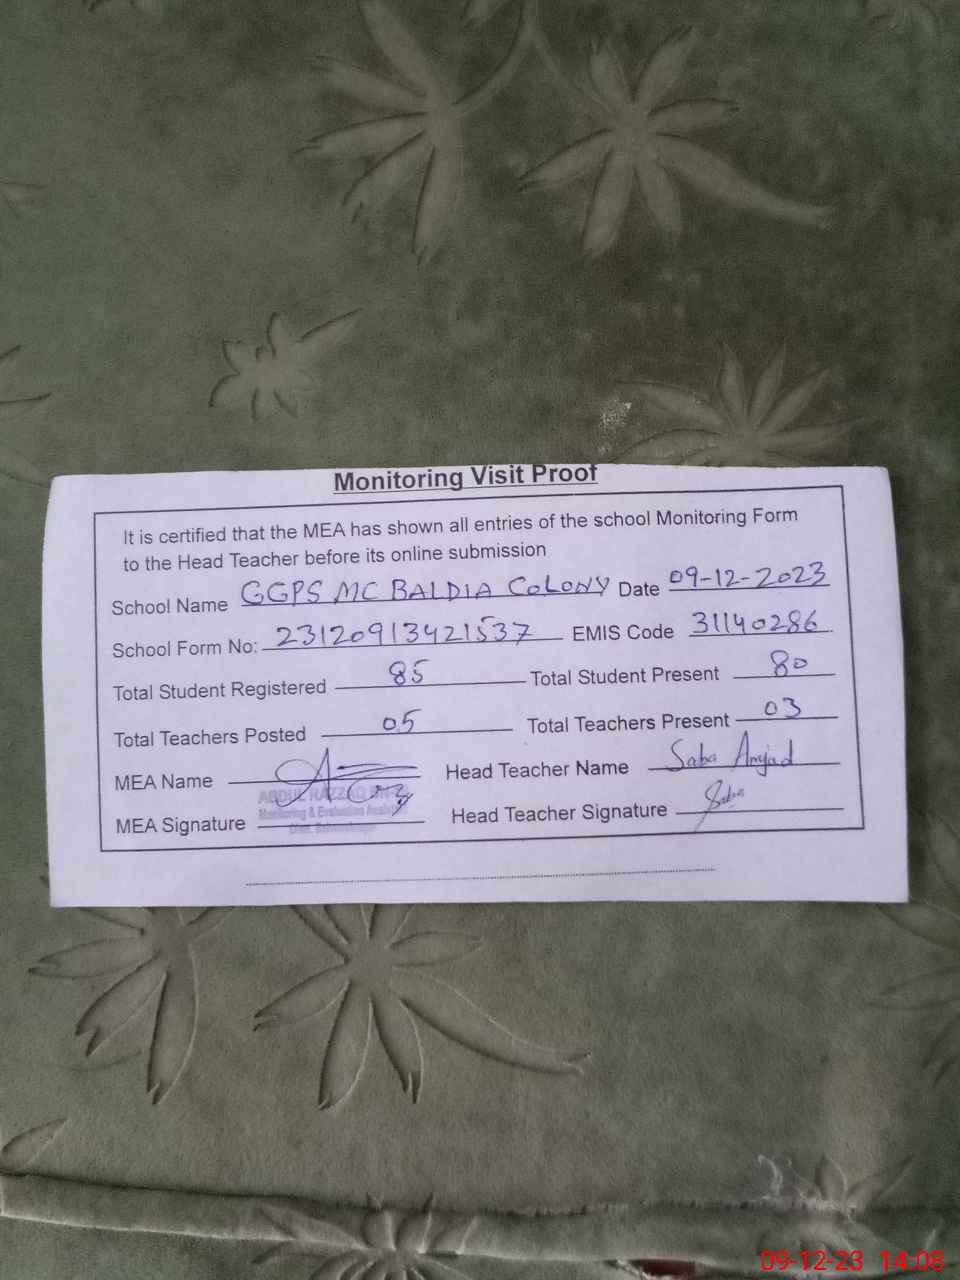 Monitoring Visit Proof
It is certified that the MEA has shown all entries of the school Monitoring Form
to the Head Teacher before its online submission
School Name GGPS MC BALDIA COLONY Date 09-12-2023
School Form No: 23120913421537 EMIS Code 31140286
Total Student Registered 85 Total Student Present 80
Total Teachers Posted 05 Total Teachers Present 03
MEA Name Head Teacher Name Saba Amjad
ABDUL RAZZAQ
Monitoring & Evaluation
MEA Signature Head Teacher Signature Saba
09-12-23 14:08